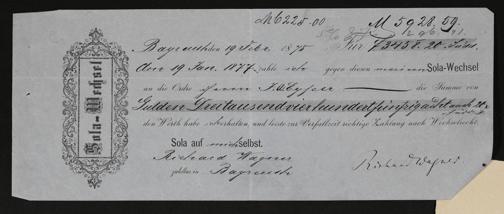 M 6225.00
M 5928.59.
Bayreuth den 19 Febr. 1875 Für f 3458. 20
den 19 Jan. 1877 zahle ich gegen diesen meinen Sola-Wechsel
an die Ordre Herrn die Summe von
Gulden Dreitausendvierhundertfünfzigacht
den Werth habe erhalten, und leiste zur Verfallzeit richtige Zahlung nach Wechselrecht.
Sola auf mich selbst.
Richard Wagner
Richard Wagner
zahlbar in Bayreuth
Sola-Wechsel